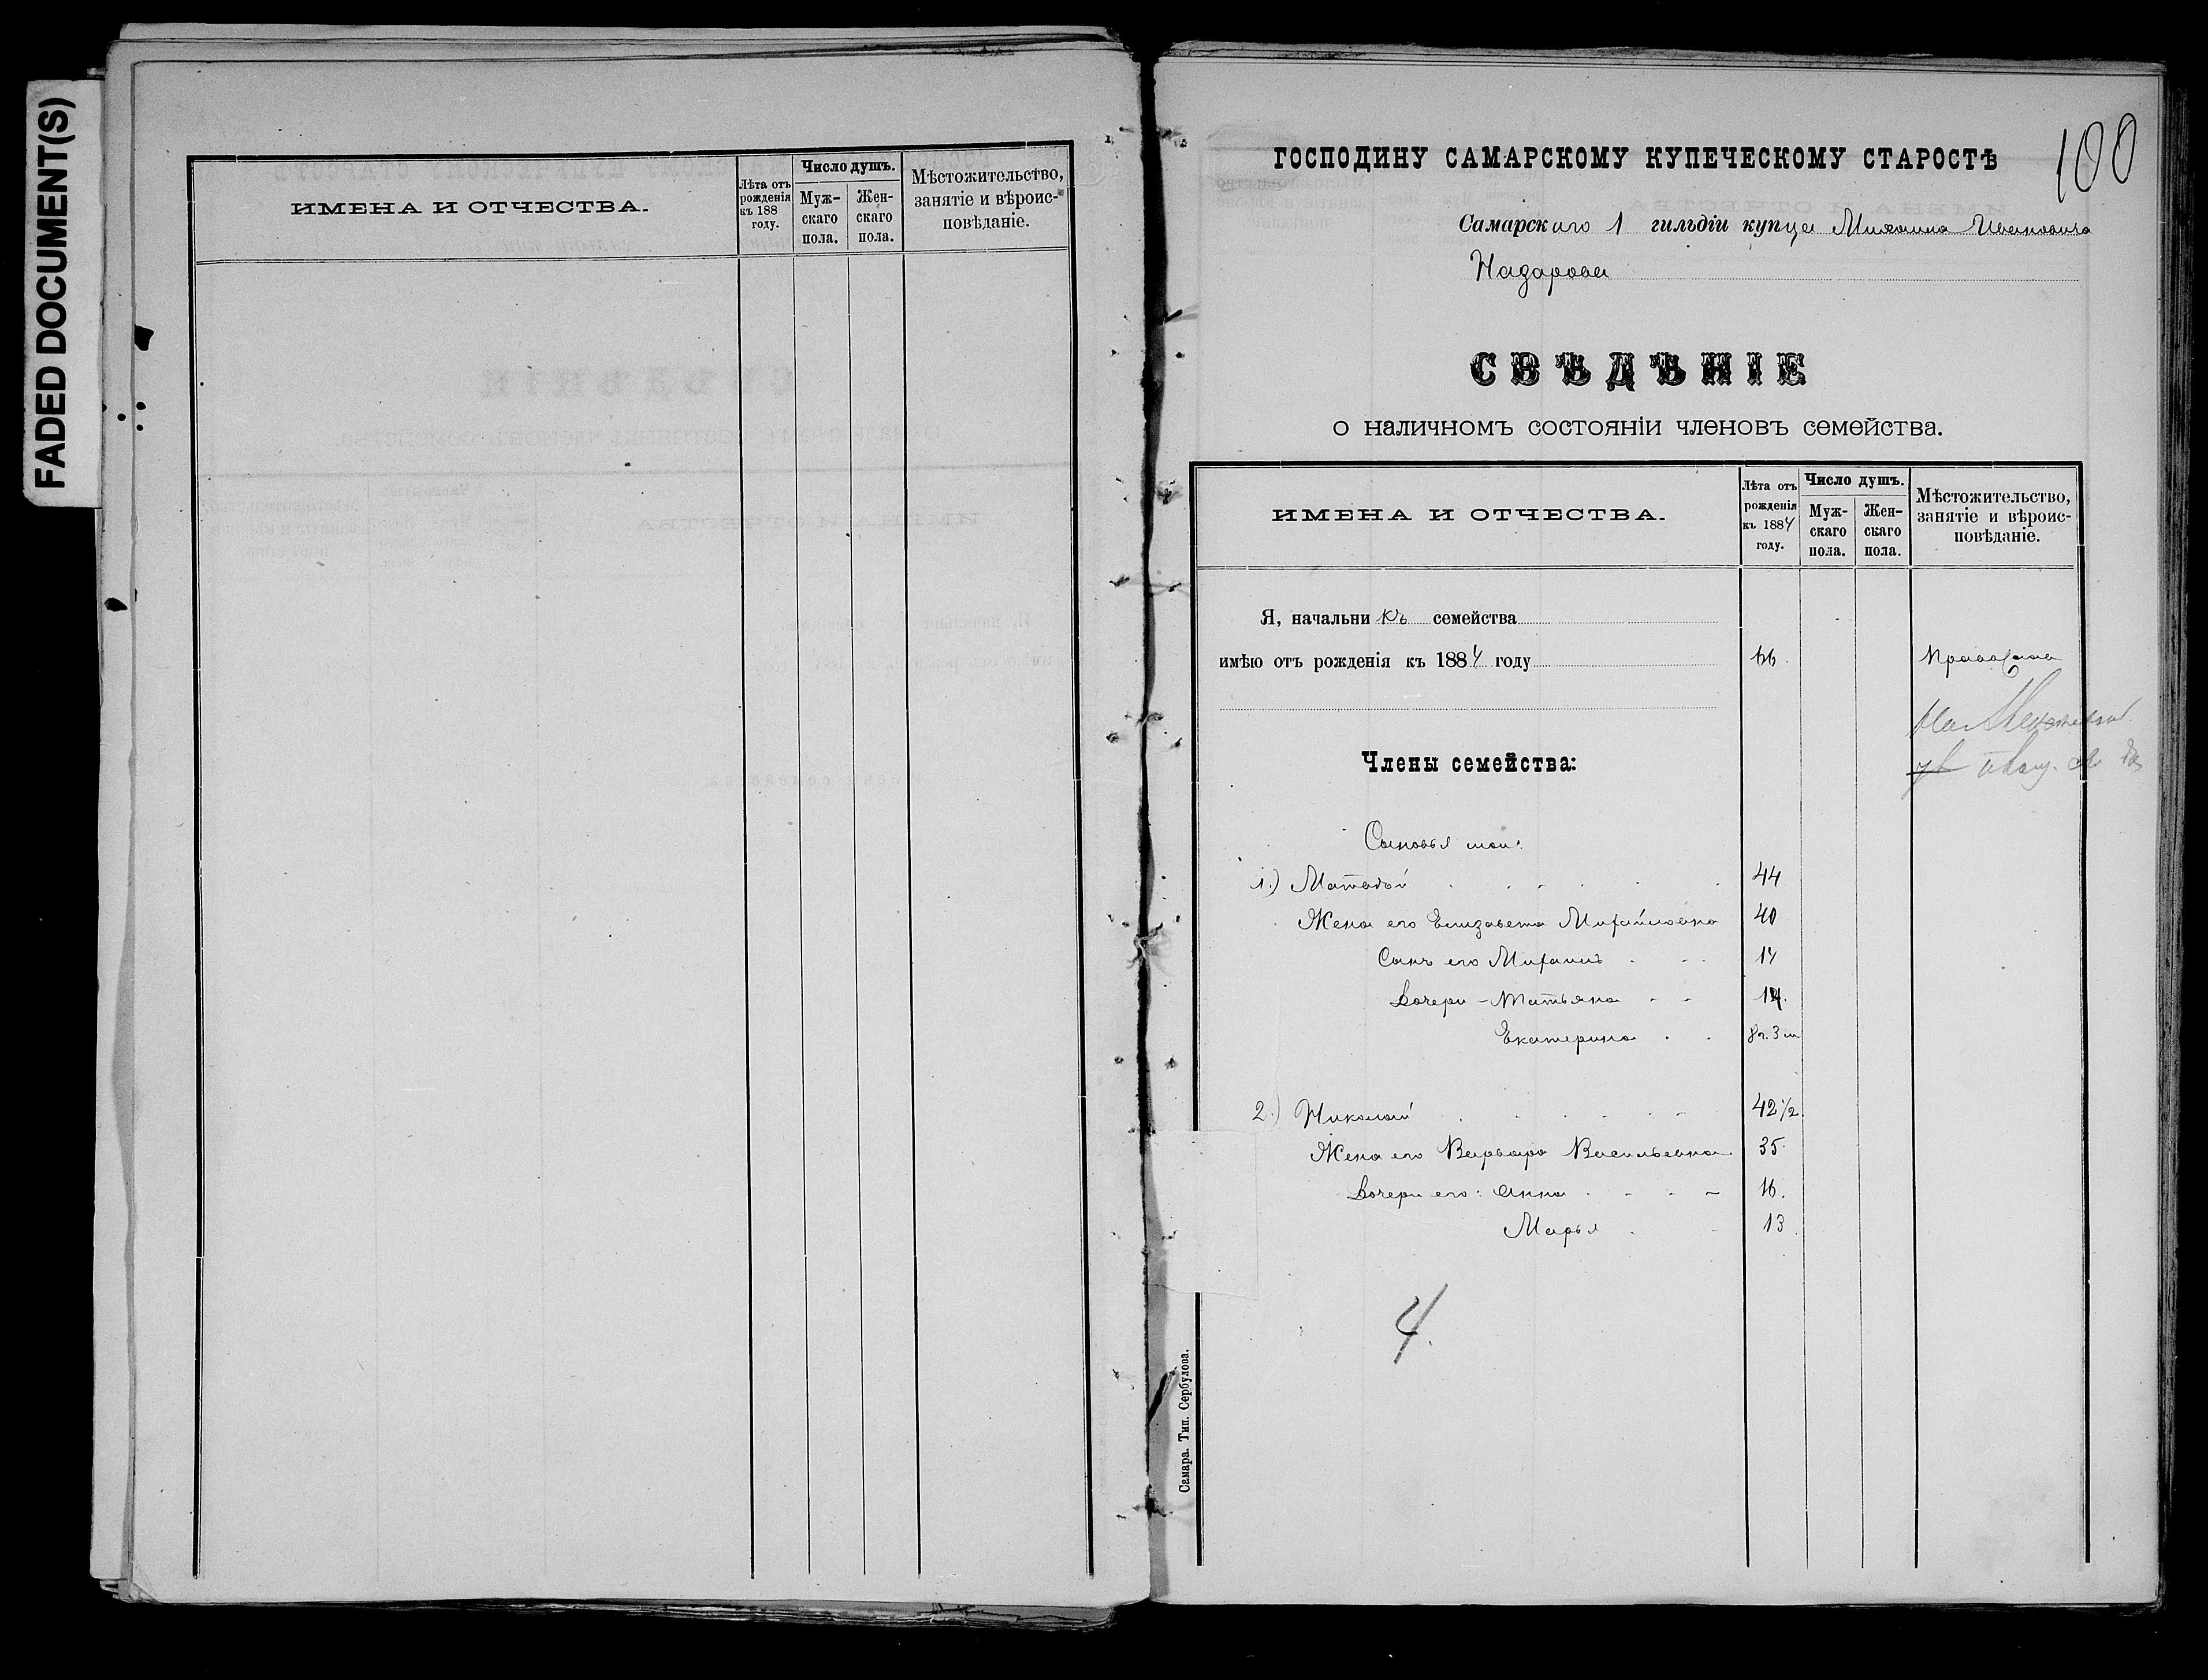 FADED DOCUMENT(S)
ИМЕНА И ОТЧЕСТВА.
Лѣта отъ рожденія къ 188 году.
Число душъ.
Мужскаго пола.
Женскаго пола.
Мѣстожительство, занятіе и вѣроисповѣданіе.
100
ГОСПОДИНУ САМАРСКОМУ КУПЕЧЕСКОМУ СТАРОСТѢ
Самарскаго 1 гильдіи купца Михаила Ивановича
Назарова
СВѢДѢНІЕ
о наличномъ состояніи членовъ семейства.
ИМЕНА И ОТЧЕСТВА.
Лѣта отъ рожденія къ 1884 году.
Число душъ.
Мужскаго пола.
Женскаго пола.
Мѣстожительство, занятіе и вѣроисповѣданіе.
Я, начальникъ семейства
имѣю отъ рожденія къ 1884 году 66
На
Члены семейства:
Сыновья мои:
1.) Матвѣй 44
Жена его Елизавета Михайловна 40
Сынъ его Михаилъ 14
Дочери - Татьяна 12.
Екатерина 8 г. 3 м
2.) Николай 42 1/2
Жена его Варвара Васильевна 35.
Дочери его: Анна 16.
Марья 13.
4.
Самара. Тип. Сербулова.